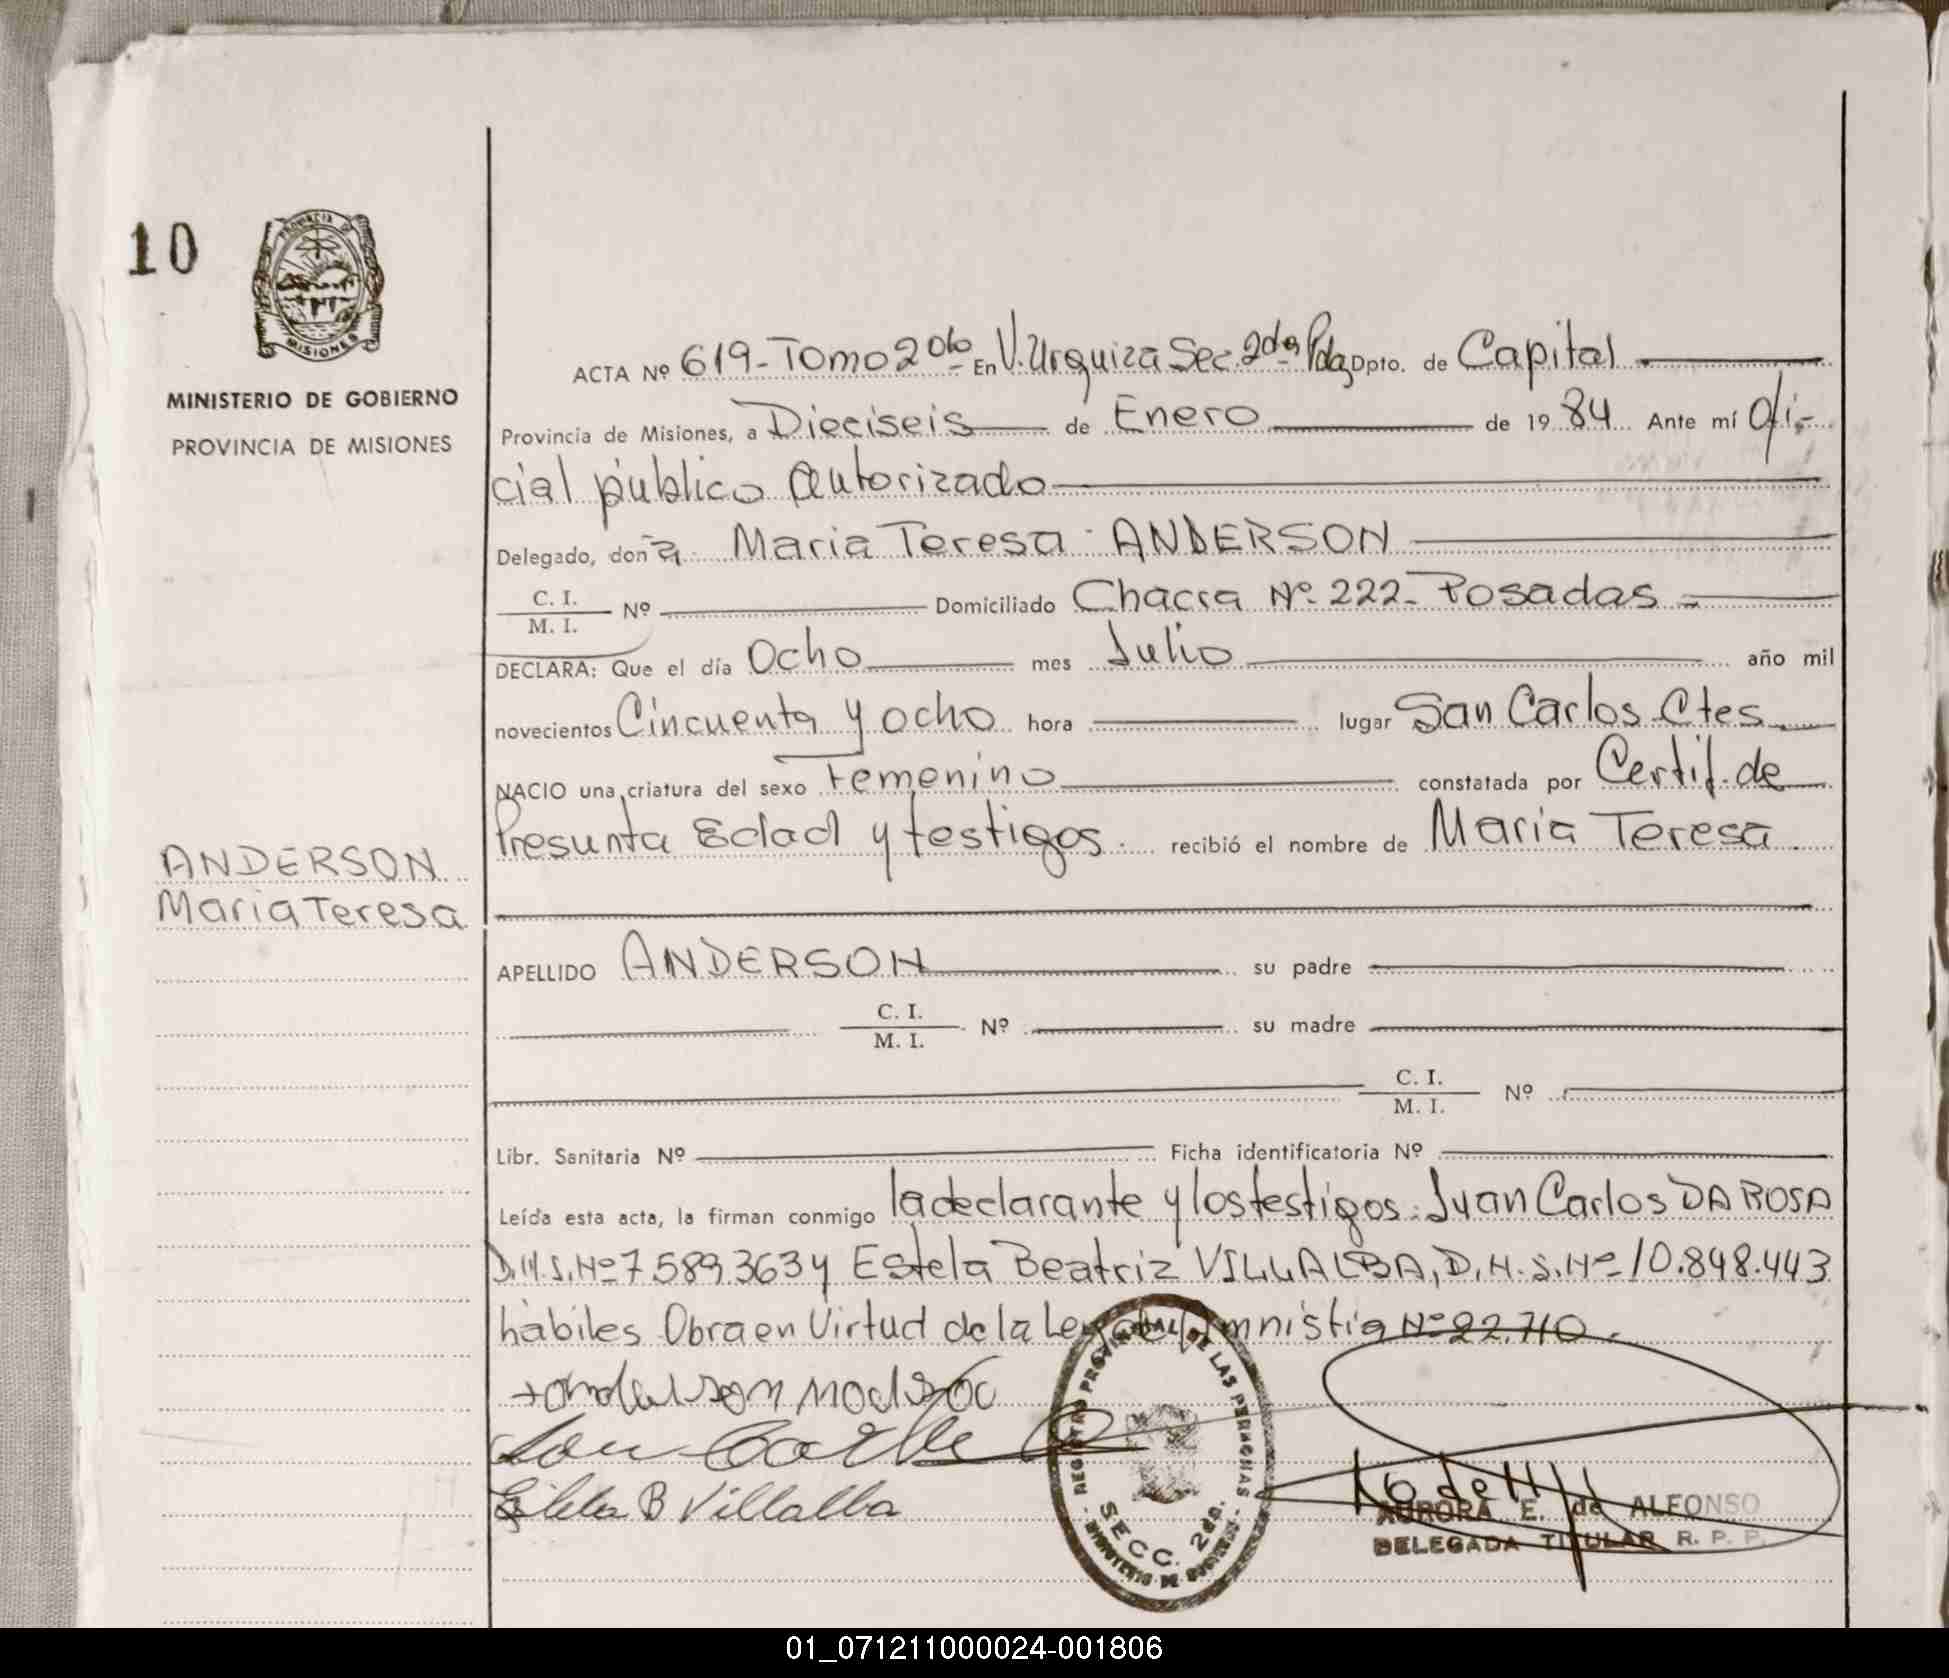 10
PROVINCIA DE
MISIONES
MINISTERIO DE GOBIERNO
PROVINCIA DE MISIONES
ACTA Nº 619-Tomo 2do En V. Urquiza Sec. 2da Pdas Dpto. de Capital
Provincia de Misiones, a Dieciseis de Enero de 1984 Ante mí ofi-
cial público Autorizado
Delegado, doña Maria Teresa ANDERSON
C. I.
M. I. Nº Domiciliado Chacra Nº 222- Posadas
DECLARA: Que el día Ocho mes Julio año mil
novecientos Cincuenta y ocho hora lugar San Carlos Ctes
NACIO una criatura del sexo Femenino constatada por Certif. de
Presunta Edad y testigos. recibió el nombre de Maria Teresa
ANDERSON
Maria Teresa
APELLIDO ANDERSON su padre
C. I.
M. I. Nº su madre
C. I.
M. I. Nº
Libr. Sanitaria Nº Ficha identificatoria Nº
Leída esta acta, la firman conmigo la declarante y los testigos: Juan Carlos DA ROSA
Nº 7.589.363 y Estela Beatriz VILLALBA, Nº 10.848.443
hábiles Obra en Virtud de la Ley de Amnistia Nº 22.710.
B Villalba
REGISTRO PROVINCIAL DE LAS PERSONAS
SECC. 2da.
MINISTERIO DE GOBIERNO
AURORA E. de ALFONSO
DELEGADA TITULAR R. P. P.
01_071211000024-001806